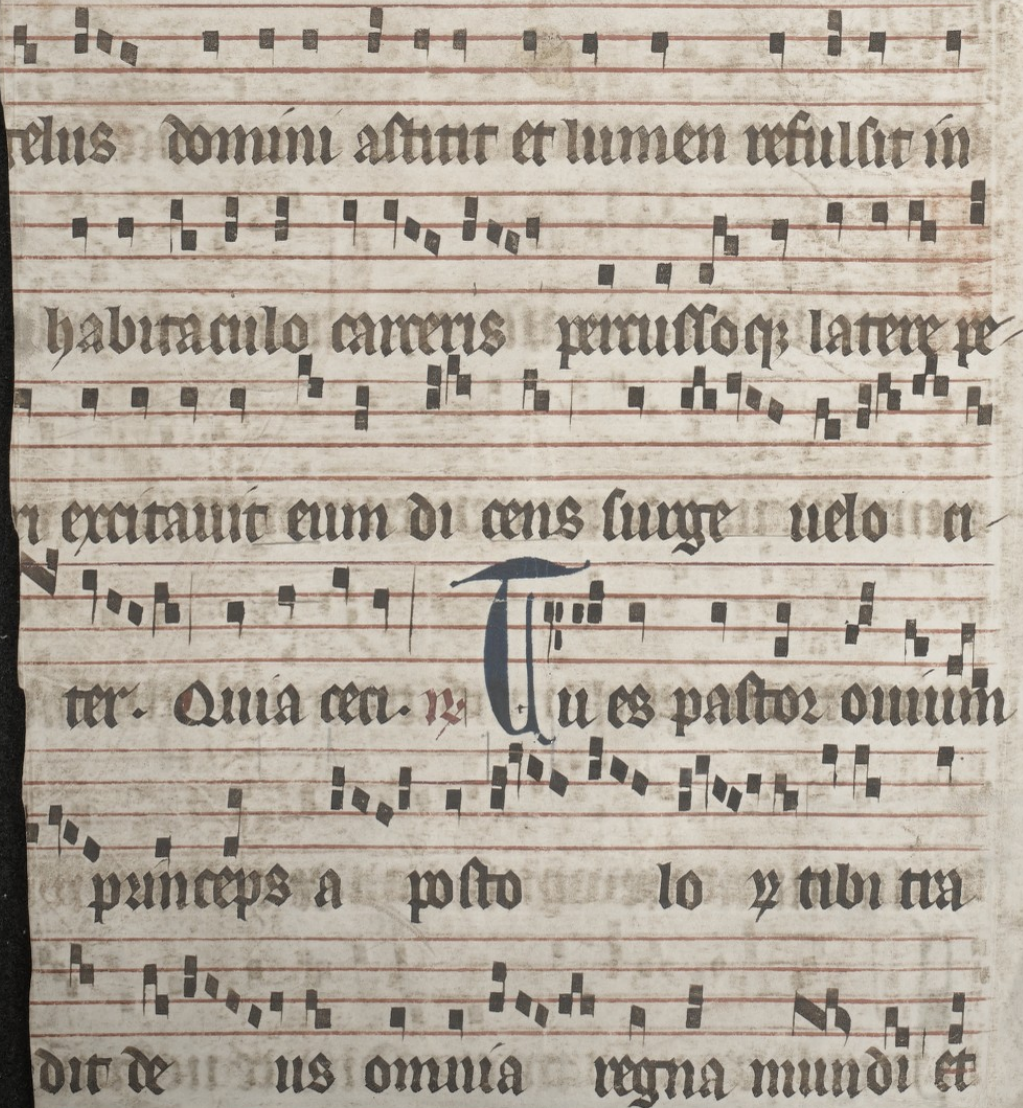 gelus domini astitit et lumen refulsit in
habitaculo carceris percussoq; latere pe-
ri excitauit eum di cens surge uelo ci-
ter. Quia ceci. ℟ Tu es pastor ouium
princeps a posto lo ꝝ tibi tra
dit de us omnia regna mundi et